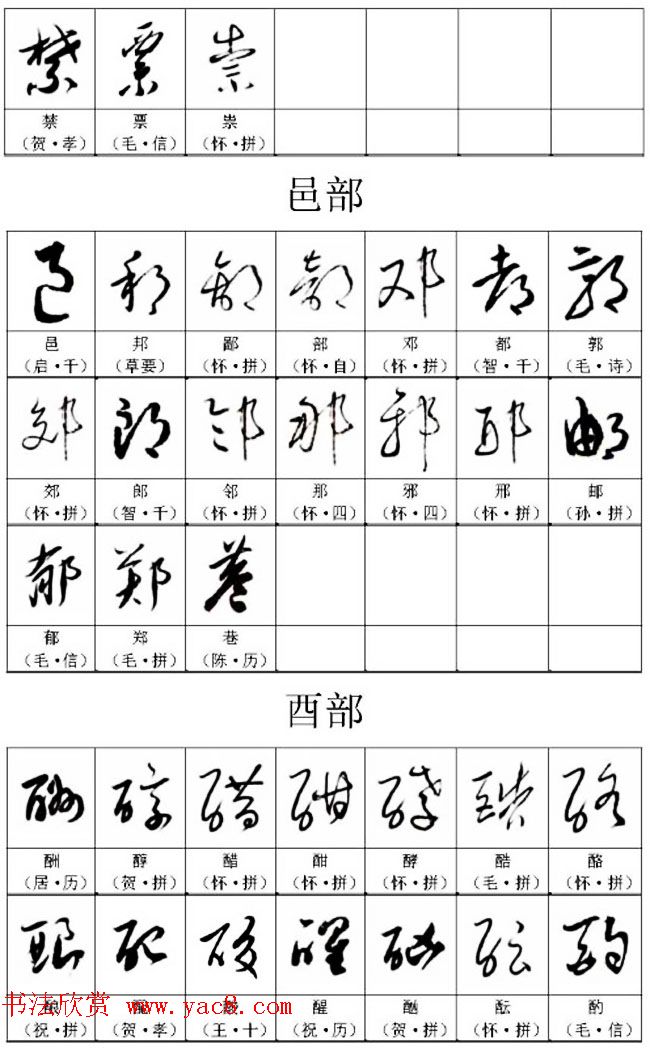 禁 票 祟
（贺·孝） （毛·信） （怀·拼）
邑部
邑 邦 鄙 部 邓 都 郭
（启·千） （草要） （怀·拼） （怀·自） （怀·拼） （智·千） （毛·诗）
郊 郎 邻 那 邪 邢 邮
（怀·拼） （智·千） （怀·拼） （怀·四） （怀·四） （怀·拼） （孙·拼）
郁 郑 巷
（毛·信） （毛·拼） （陈·历）
酉部
酬 醇 醋 酣 酵 酷 酪
（居·历） （贺·拼） （怀·拼） （怀·拼） （怀·拼） （毛·拼） （怀·拼）
醒 酝 酌
书法欣赏 www.yac8.com
（祝·拼） （贺·孝） （王·十） （祝·历） （贺·拼） （怀·拼） （毛·信）